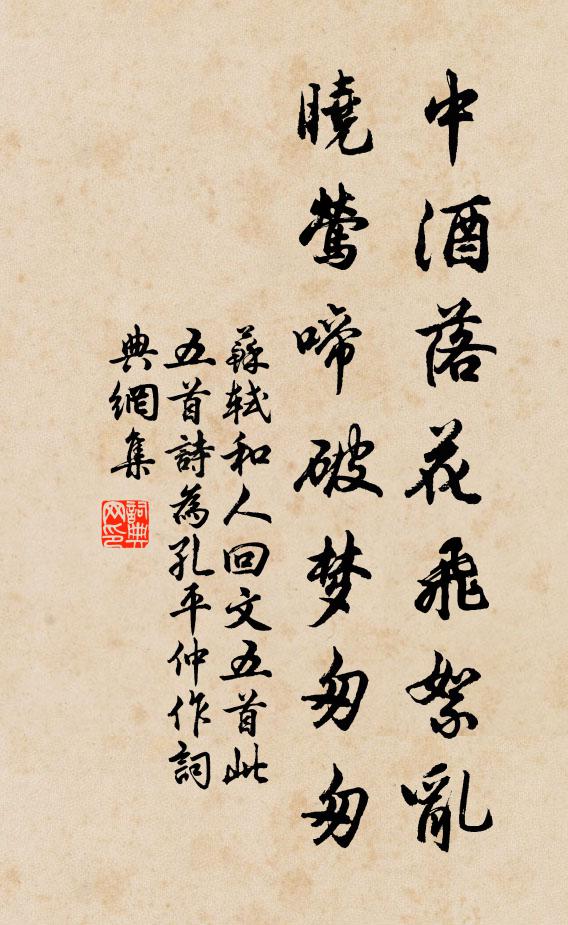 中酒落花飛絮亂
曉鶯啼破梦匆匆
蘇軾和人回文五首此
五首詩為孔平仲作詞
典網集
詞典网印